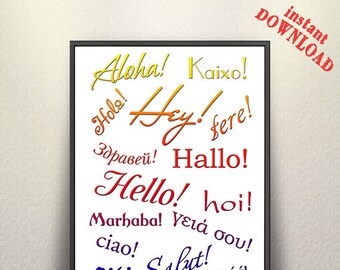 instant
DOWNLOAD
Aloha! Kaixo!
Hola! Hey! fere!
Здравей! Hallo!
Hello! hoi!
Marhaba! γειά σου!
ciao! Salut!